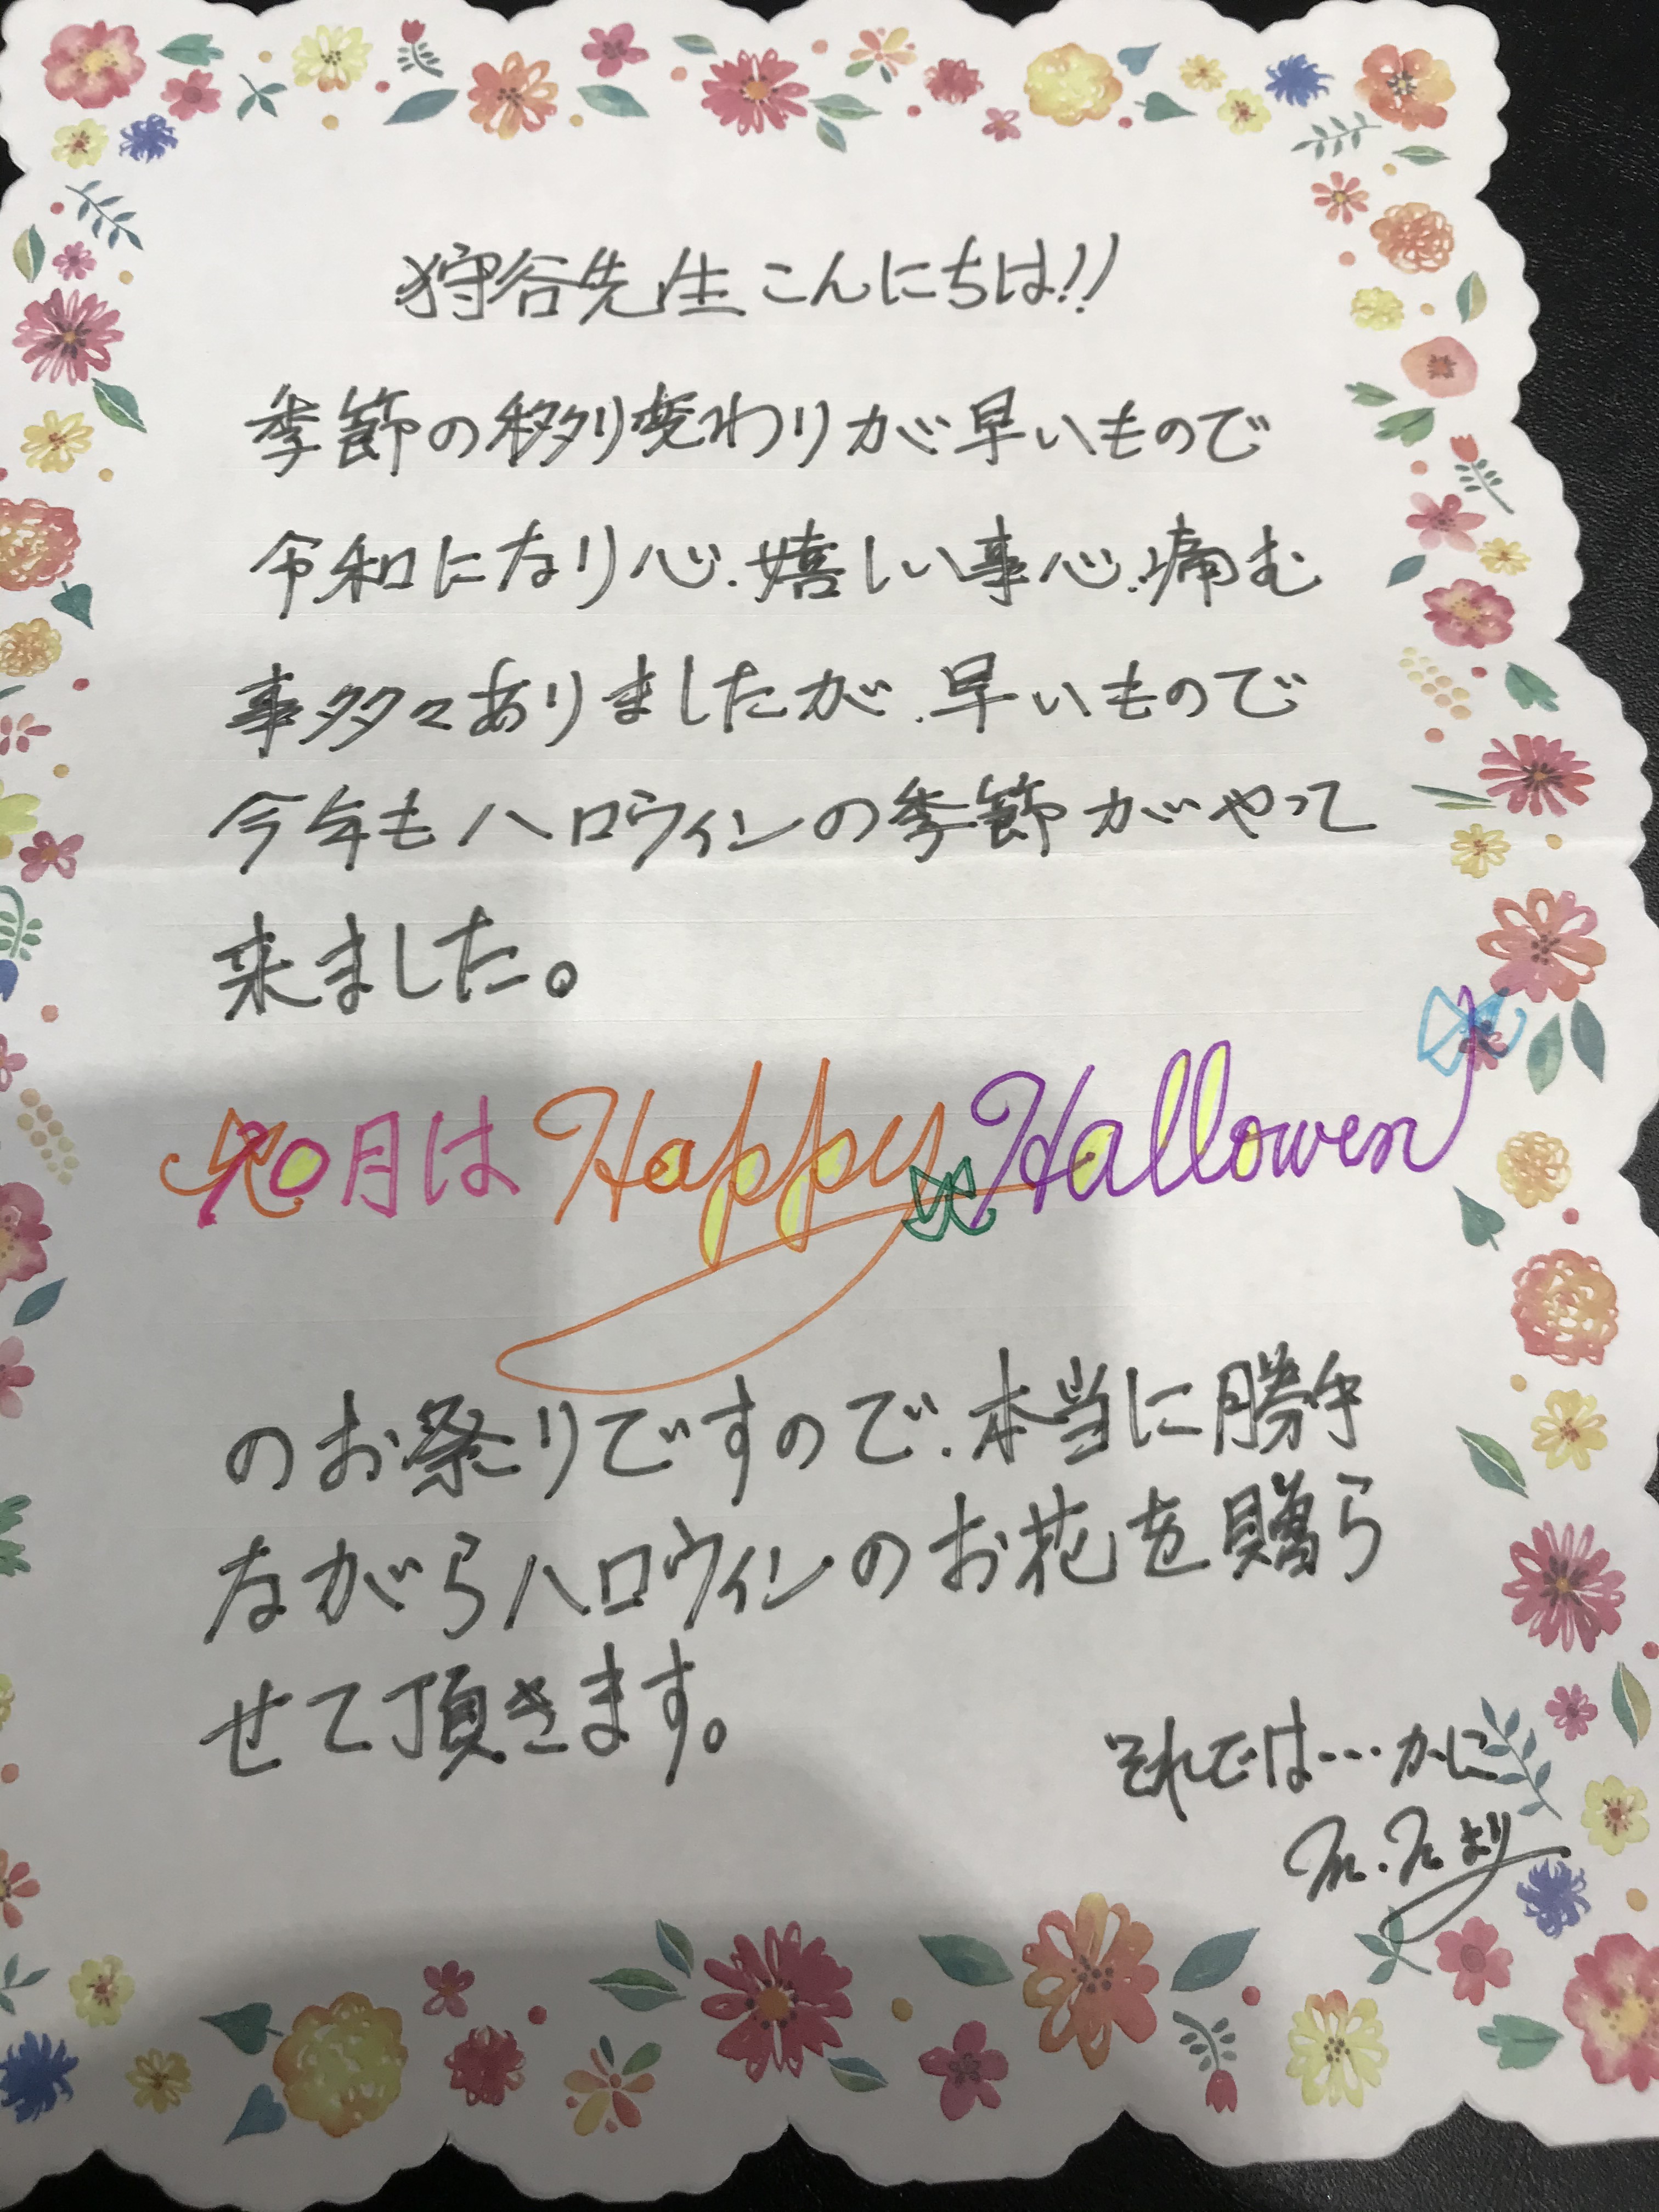 狩谷先生こんにちは!!
季節の移り変わりが早いもので
令和になり心.嬉しい事心.痛む
事多々ありましたが.早いもので
今年もハロウィンの季節がやって
来ました。
10月は Happy Hallowen
のお祭りですので.本当に勝手
ながらハロウィンのお花を贈ら
せて頂きます。
それでは…かに
より